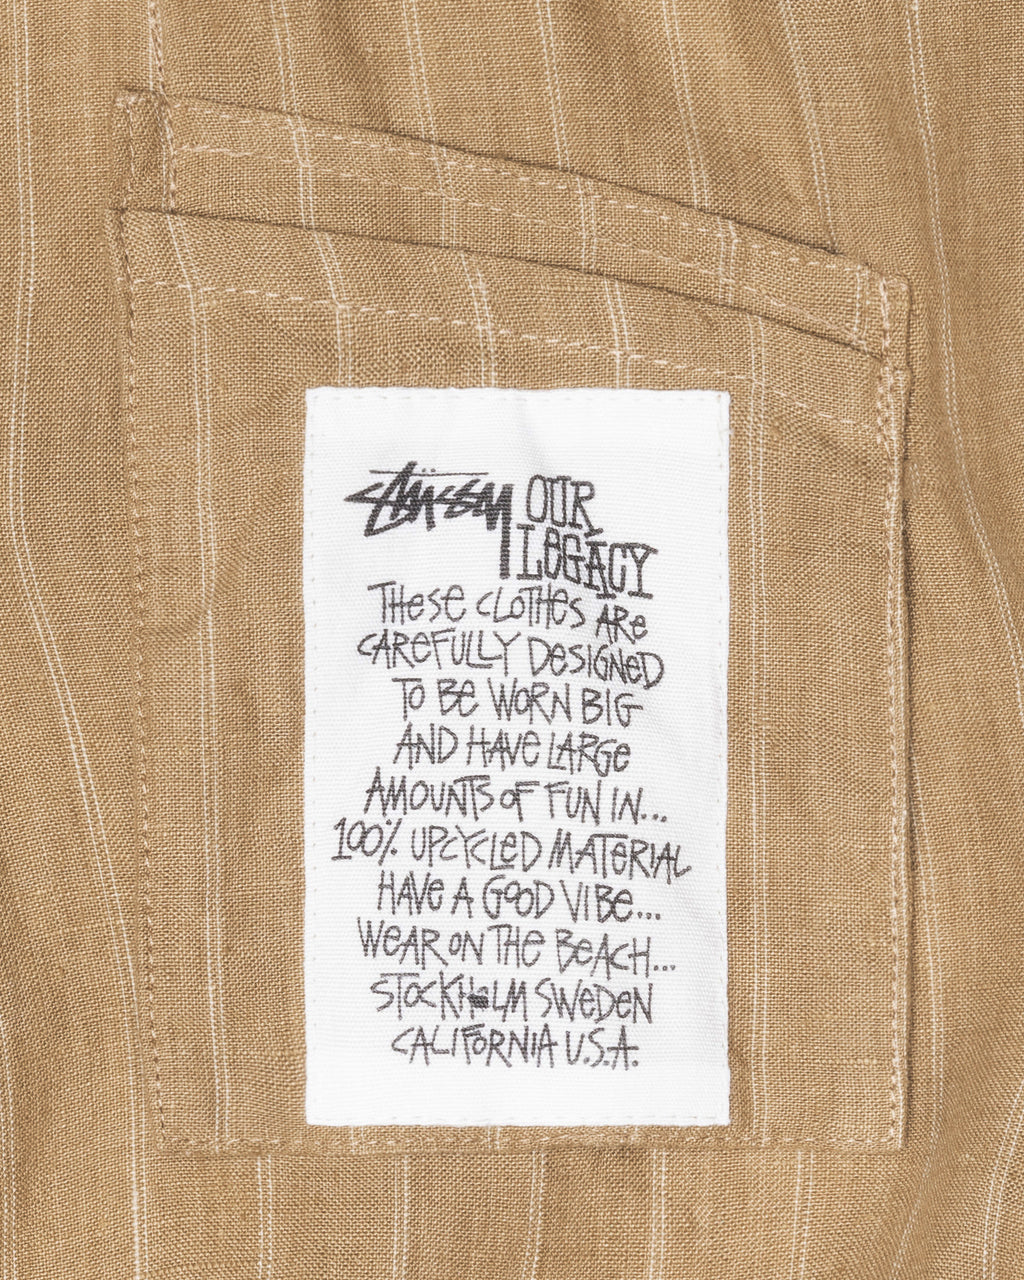 STÜSSY OUR
LEGACY
THESE CLOTHES ARE
CAREFULLY DESIGNED
TO BE WORN BIG
AND HAVE LARGE
AMOUNTS OF FUN IN...
100% UPCYCLED MATERIAL
HAVE A GOOD VIBE...
WEAR ON THE BEACH...
STOCKHOLM SWEDEN
CALIFORNIA U.S.A.